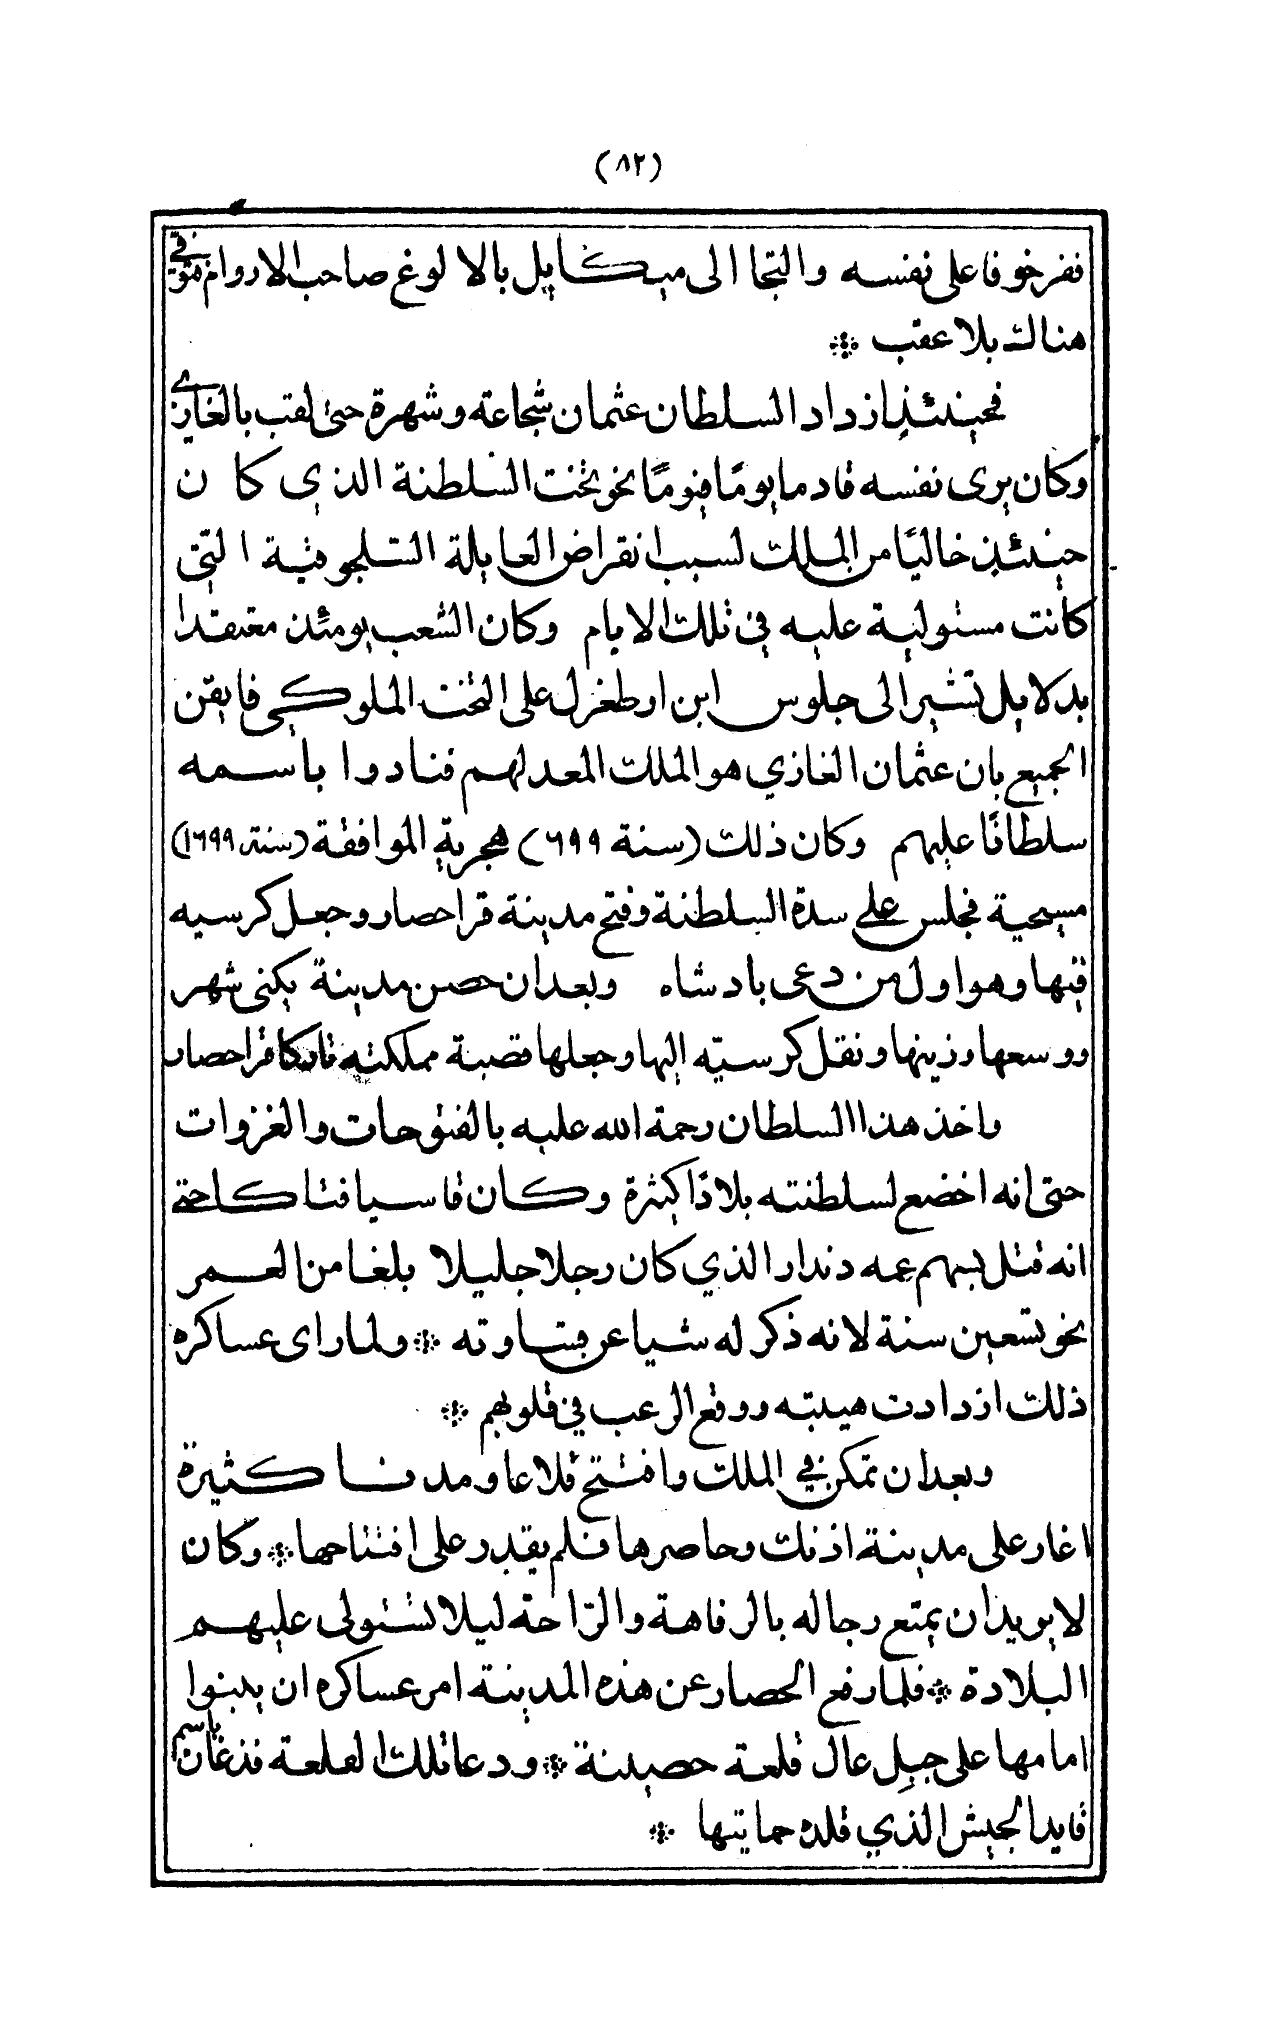 (٨٢)
ففر خوفا على نفسه والتجا الى ميكاييل بالالوغ صاحب الاروام فتوفي
هناك بلا عقب ❊
فحينئذ ازداد السلطان عثمان شجاعة وشهرة حتى لقب بالغازي
وكان يرى نفسه قادما يومًا فيومًا نحو تخت السلطنة الذي كان
حينئذ خاليًا من الملك لسبب انقراض العايلة السلجوقية التي
كانت مستولية عليه في تلك الايام وكان الشعب يومئذ معتقدا
بدلايل تشير الى جلوس ابن ارطغرل على التخت الملوكي فايقن
الجميع بان عثمان الغازي هو الملك المعد لهم فنادوا باسمه
سلطانًا عليهم وكان ذلك (سنة ٦٩٩) هجرية الموافقة (سنة ١٦٩٩)
مسيحية فجلس على سدة السلطنة وفتح مدينة قراحصار وجعل كرسيه
فيها وهو اول من دعى بادشاه وبعد ان حصن مدينة يكنى شهر
ووسعها وزينها ونقل كرسيّه اليها وجعلها قصبة مملكته تاركا قراحصار
واخذ هذا السلطان رحمة الله عليه بالفتوحات والغزوات
حتى انه اخضع لسلطنته بلادًا كثيرة وكان قاسيا فتاكا حتى
انه قتل بسهم عمه دندار الذي كان رجلا جليلا بلغا من العمر
نحو تسعين سنة لانه ذكر له شيا عن قساوته ❊ ولما راى عساكره
ذلك ازدادت هيبته ووقع الرعب في قلوبهم ❊
وبعد ان تمكن في الملك وافتتح قلاعا ومدنا كثيرة
اغار على مدينة اذنك وحاصرها فلم يقدر على افتتاحها ❊ وكان
لا يريد ان يمتع رجاله بالرفاهة والرّاحة ليلا تستولى عليهم
البلادة ❊ فلما رفع الحصار عن هذه المدينة امر عساكره ان يبنوا
امامها على جبل عال قلعة حصينة ❊ ودعا تلك القلعة فذغان باسم
قايد الجيش الذي قلده حمايتها ❊